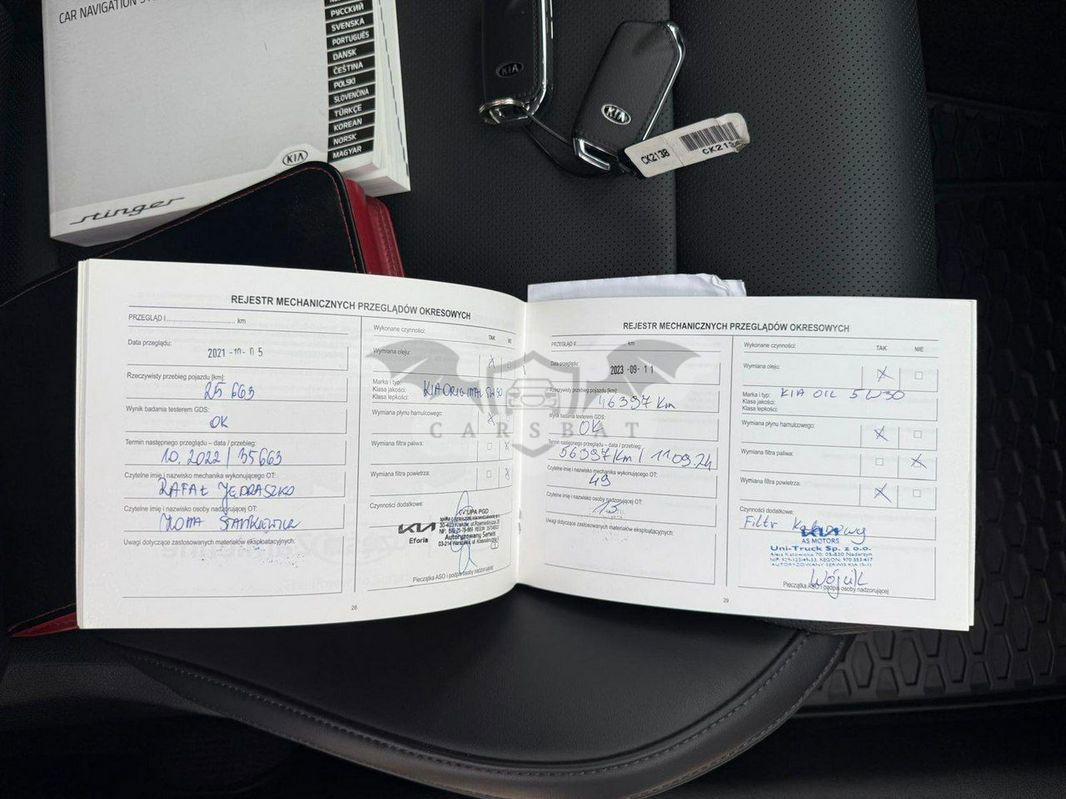 CAR NAVIGATION
РУССКИЙ
SVENSKA
PORTUGUÊS
DANSK
ČEŠTINA
POLSKI
SLOVENČINA
TÜRKÇE
KOREAN
NORSK
MAGYAR
KIA
stinger
KIA
KIA
CK2138
CARSBAT
REJESTR MECHANICZNYCH PRZEGLĄDÓW OKRESOWYCH
PRZEGLĄD I.......................... km
Data przeglądu:
2021-10-05
Rzeczywisty przebieg pojazdu [km]:
25 663
Wynik badania testerem GDS:
OK
Termin następnego przeglądu – data / przebieg:
10.2022 / 35663
Czytelne imię i nazwisko mechanika wykonującego OT:
RAFAŁ
Czytelne imię i nazwisko osoby nadzorującej OT:
Uwagi dotyczące zastosowanych materiałów eksploatacyjnych:
Wykonane czynności:
TAK NIE
Wymiana oleju:
Marka i typ:
Klasa jakości:
Klasa lepkości:
Wymiana płynu hamulcowego:
Wymiana filtra paliwa:
Wymiana filtra powietrza:
Czynności dodatkowe:
KIA
Eforia
GRUPA PGD
Autoryzowany Serwis
Pieczątka ASO i podpis osoby nadzorującej
28
REJESTR MECHANICZNYCH PRZEGLĄDÓW OKRESOWYCH
km
Data przeglądu:
2023-09-11
Rzeczywisty przebieg pojazdu [km]:
46397 km
Wynik badania testerem GDS:
OK
Termin następnego przeglądu – data / przebieg:
56397 km / 11.09.24
Czytelne imię i nazwisko mechanika wykonującego OT:
49
Czytelne imię i nazwisko osoby nadzorującej OT:
13
Uwagi dotyczące zastosowanych materiałów eksploatacyjnych:
Wykonane czynności:
TAK NIE
Wymiana oleju:
Marka i typ:
KIA OIL 5W30
Klasa jakości:
Klasa lepkości:
Wymiana płynu hamulcowego:
Wymiana filtra paliwa:
Wymiana filtra powietrza:
Czynności dodatkowe:
Filtr Kabinowy
KIA
AS MOTORS
Uni-Truck Sp. z o.o.
Pieczątka ASO i podpis osoby nadzorującej
29